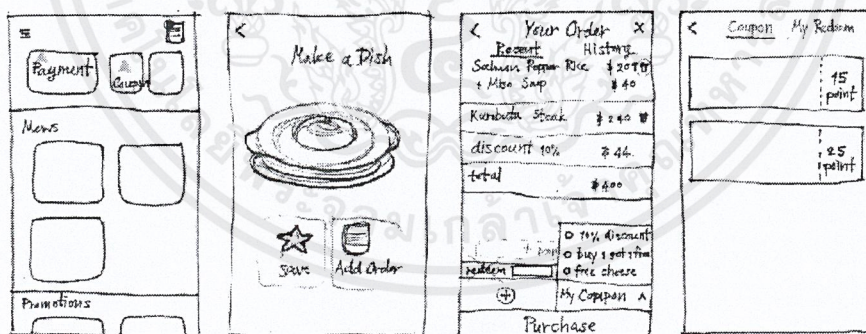 Payment
Coupon
News
Promotions
Make a Dish
Save
Add Order
Your Order X
Recent History
Salmon Pepper Rice
+ Miso Soup ฿40
Kurobuta Steak ฿240
discount 10% ฿44
total
฿400
redeem
10% discount
free cheese
My Coupon ^
Purchase
Coupon My Redeem
15
point
25
point